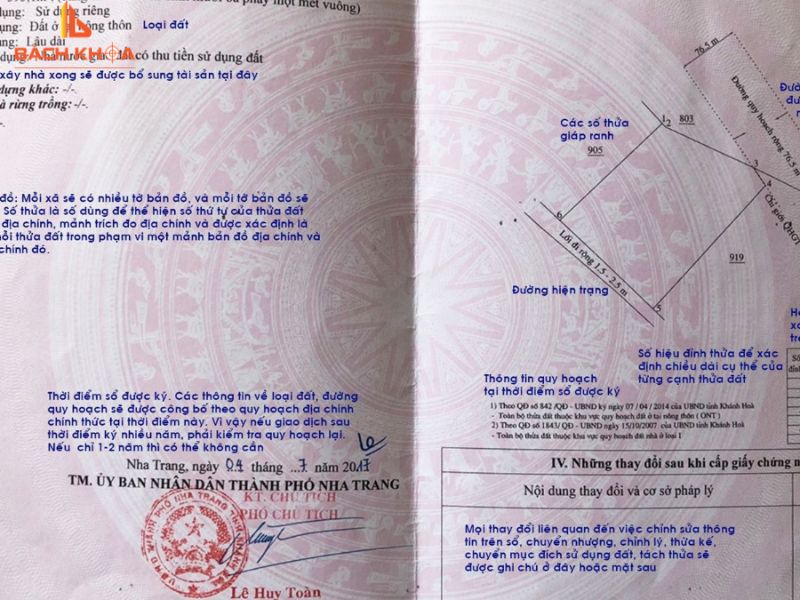 BÁCH KHOA
dụng: Sử dụng riêng
dụng: Đất ở nông thôn
Loại đất
dụng: Lâu dài
đất có thu tiền sử dụng đất
xây nhà xong sẽ được bổ sung tài sản tại đây
dựng khác: -/-
à rừng trồng: -/-.
đồ: Mỗi xã sẽ có nhiều tờ bản đồ, và mỗi tờ bản đồ sẽ
Số thửa là số dùng để thể hiện số thứ tự của thửa đất
địa chính, mảnh trích đo địa chính và được xác định là
mỗi thửa đất trong phạm vi một mảnh bản đồ địa chính và
chính đó.
Thời điểm sổ được ký. Các thông tin về loại đất, đường
quy hoạch sẽ được công bố theo quy hoạch địa chính
chính thức tại thời điểm này. Vì vậy nếu giao dịch sau
thời điểm ký nhiều năm, phải kiểm tra quy hoạch lại.
Nếu chỉ 1-2 năm thì có thể không cần
Nha Trang, ngày 04 tháng 7 năm 2017
TM. ỦY BAN NHÂN DÂN THÀNH PHỐ NHA TRANG
KT. CHỦ TỊCH
PHÓ CHỦ TỊCH
Lê Huy Toàn
76.5 m
Đường quy hoạch rộng 76.5 m
Các số thửa
giáp ranh
905
1
2
803
3
4
Chỉ giới QHGT
6
919
Lối đi rộng 1.5 - 2.5 m
5
Đường hiện trạng
Số hiệu đỉnh thửa để xác
định chiều dài cụ thể của
từng cạnh thửa đất
Thông tin quy hoạch
tại thời điểm sổ được ký
1) Theo QĐ số 842 /QĐ - UBND ký ngày 07 / 04 / 2014 của UBND tỉnh Khánh Hoà
- Toàn bộ thửa đất thuộc khu vực quy hoạch đất ở tại nông thôn ( ONT )
2) Theo QĐ số 1843/ QĐ - UBND ký ngày 15/10/2007 của UBND tỉnh Khánh Hoà
- Toàn bộ thửa đất thuộc khu vực quy hoạch đất nhà ở loại 1
IV. Những thay đổi sau khi cấp giấy chứng n
Nội dung thay đổi và cơ sở pháp lý
Mọi thay đổi liên quan đến việc chỉnh sửa thông
tin trên sổ, chuyển nhượng, chỉnh lý, thừa kế,
chuyển mục đích sử dụng đất, tách thửa sẽ
được ghi chú ở đây hoặc mặt sau